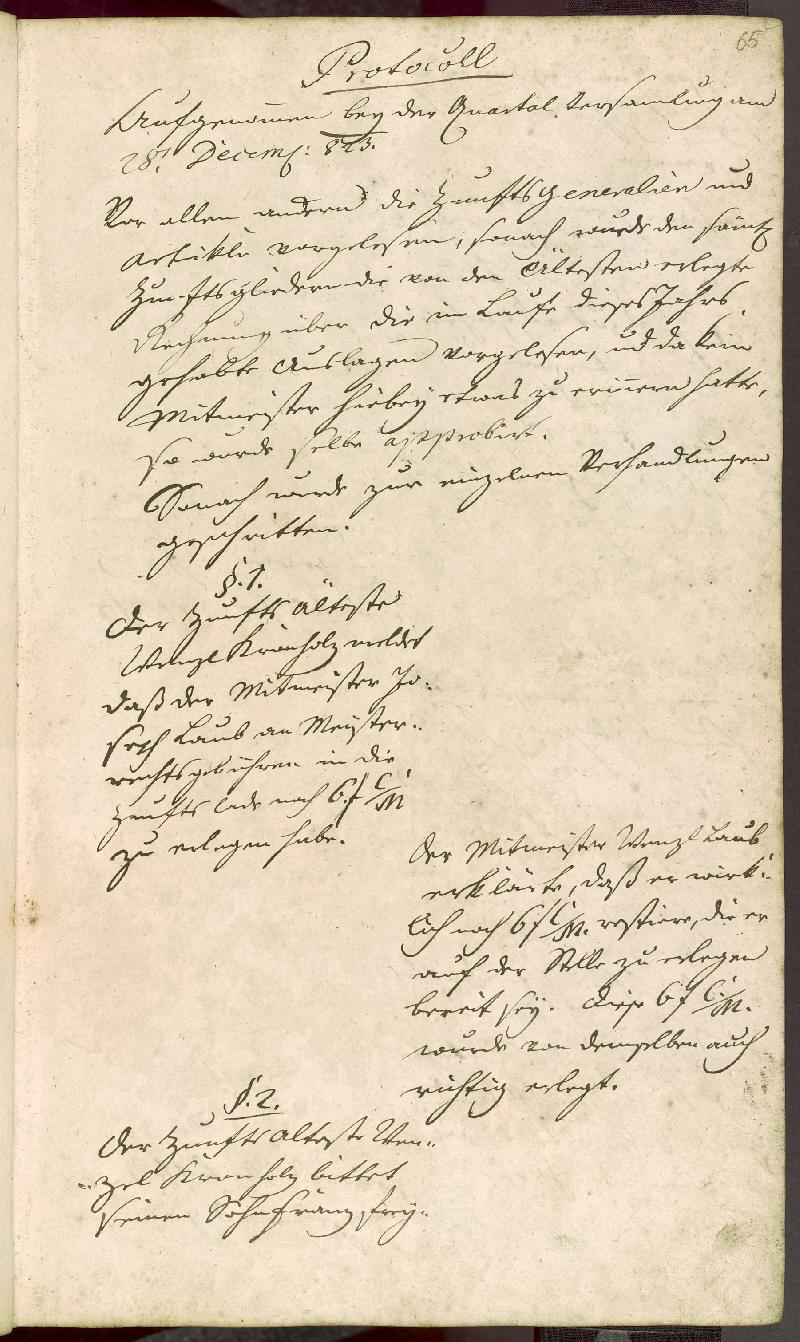 65
Protocoll
Aufgenommen bey der Quartal Versamlung am
28t Decemb: 823.
Vor allem andern die Zunfts Generalien und
Artikln vorgelesen, sonach wurde den sämtl
Zunftsgliedern die von den Ältesten erlegte
Rechnung über die im Laufe dieses Jahrs
gehabte Auslagen vorgelesen, und da kein
Mitmeister hiebey etwas zu erinnern hatte,
so wurde selbe approbirt.
Sonach wurde zur einzelnen Verhandlungen
geschritten.
§. 1.
Der Zunfts Älteste
Wenzl Kronholz meldet
daß der Mitmeister Jo-
seph Laub an Meister-
rechtsgebühren in die
Zunfts lade noch 6 f C/M
zu erlegen habe.
Der Mitmeister Wenzl Laub
erklärte, daß er wirk-
lich noch 6 f C/M. restiere, die er
auf der Stelle zu erlegen
bereit sey. Diese 6 f C/M.
wurde von demselben auch
richtig erlegt.
§. 2.
Der Zunfts Älteste Wen-
zel Kronholz bittet
seinen Sohn Franz frey-